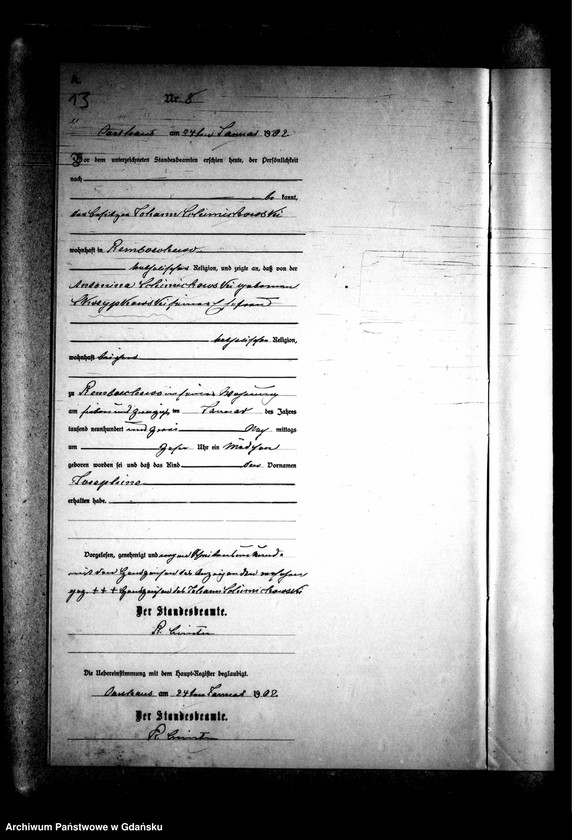 A
13
Nr. 8
Carthaus am 24ten Januar 1902
Vor dem unterzeichneten Standesbeamten erschien heute, der Persönlichkeit
nach
be kannt,
der Besitzer Johann
wohnhaft in Remboschewo
katholischer Religion, und zeigte an, daß von der
Antonina geborenen
seiner Ehefrau
katholischer Religion,
wohnhaft bei ihm
zu Remboschewo in seiner Wohnung
am im Januar des Jahres
tausend neunhundert und zwei Vor mittags
um Uhr ein Mädchen
geboren worden sei und daß das Kind den Vornamen
Josephine
erhalten habe.
Vorgelesen, genehmigt und wegen Schreibensunkunde
mit den Handzeichen des Anzeigenden versehen
gez. +++ Handzeichen des Johann
Der Standesbeamte.
Die Uebereinstimmung mit dem Haupt-Register beglaubigt.
Carthaus am 24ten Januar 1902.
Der Standesbeamte.
Archiwum Państwowe w Gdańsku